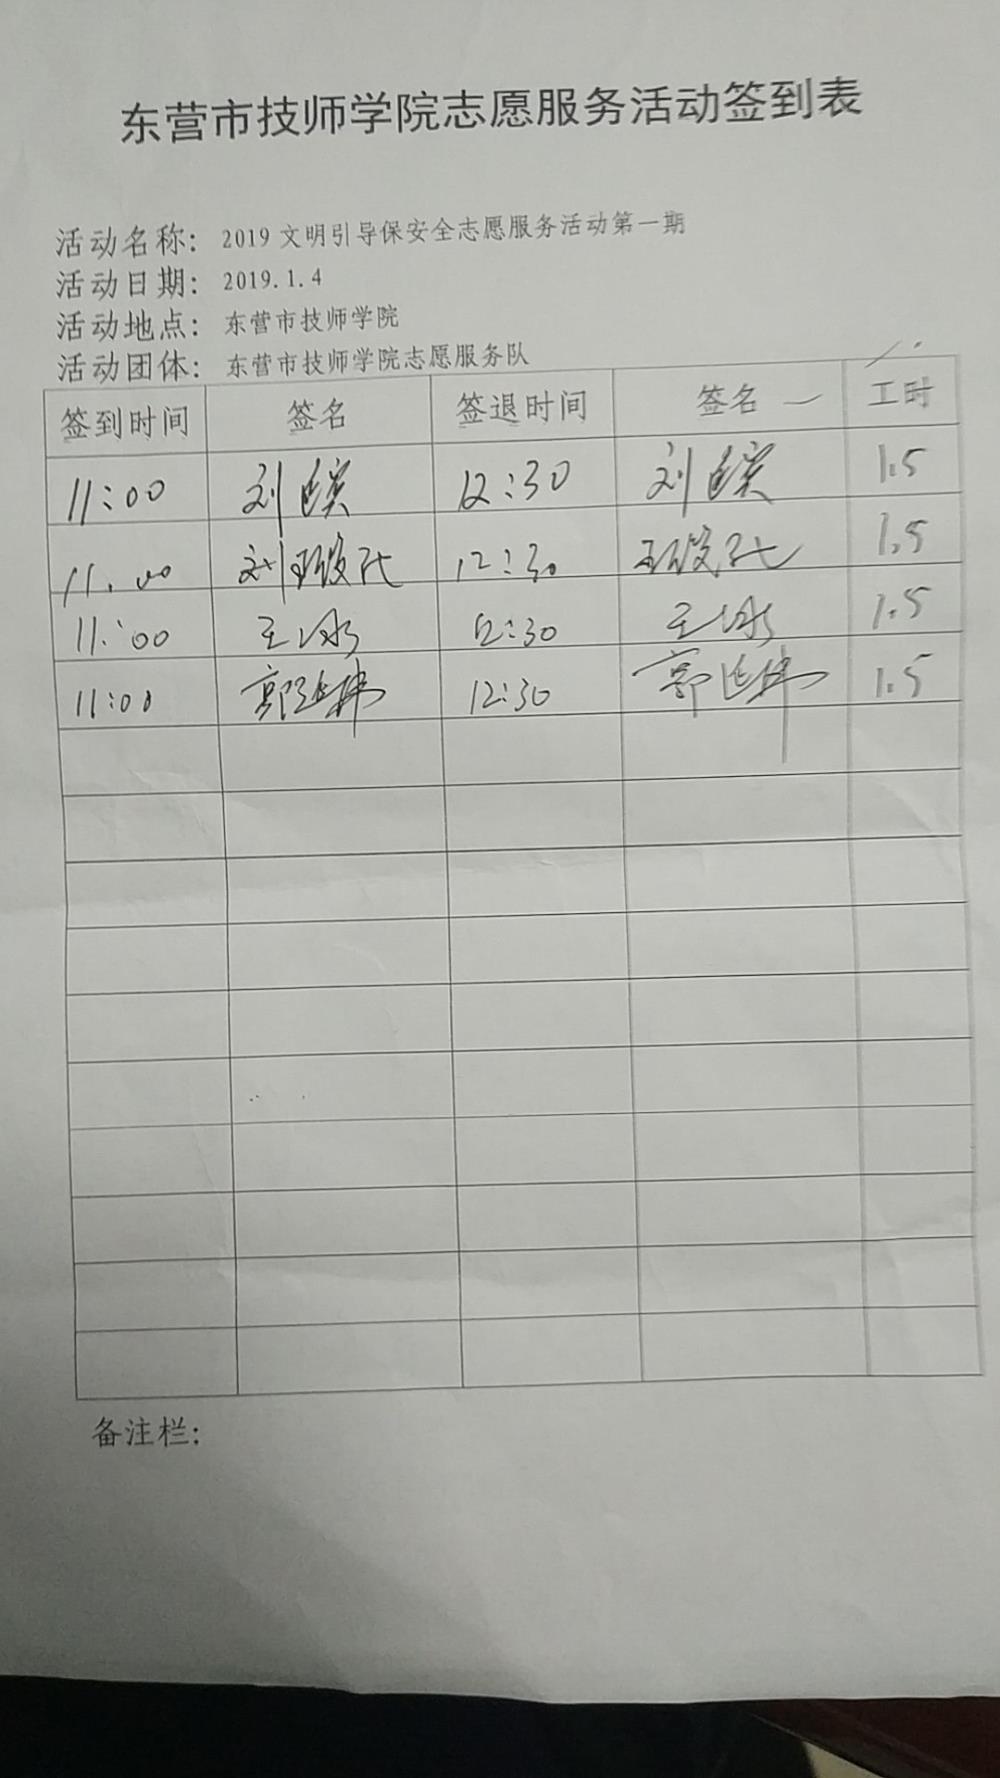 东营市技师学院志愿服务活动签到表
活动名称：2019 文明引导保安全志愿服务活动第一期
活动日期：2019.1.4
活动地点：东营市技师学院
活动团体：东营市技师学院志愿服务队
签到时间 签名 签退时间 签名 工时
11:00 刘 12:30 刘 1.5
11:00 刘 12:30 1.5
11:00 王冰 12:30 王冰 1.5
11:00 郭延伟 12:30 郭延伟 1.5
备注栏：